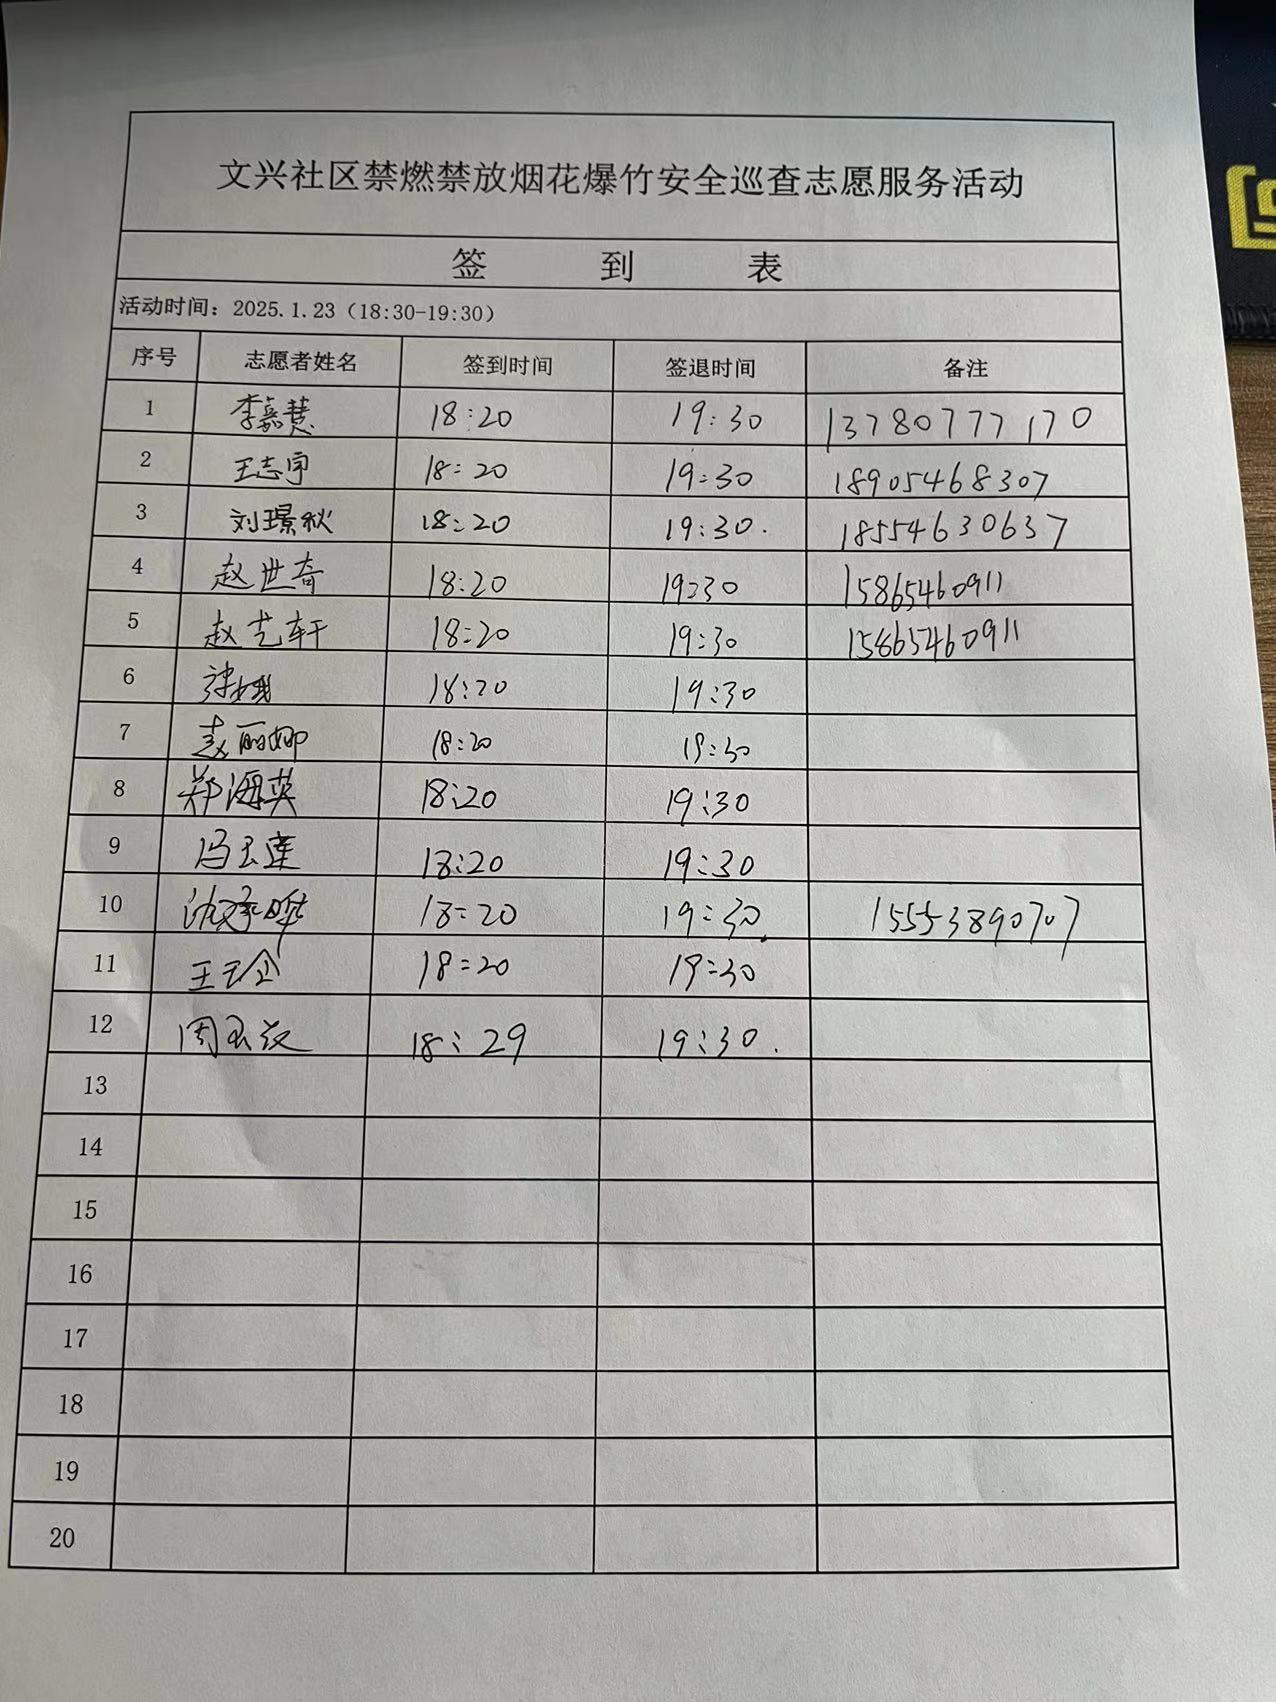 文兴社区禁燃禁放烟花爆竹安全巡查志愿服务活动
签 到 表
活动时间：2025.1.23（18:30-19:30）
序号 志愿者姓名 签到时间 签退时间 备注
1 李嘉慧 18:20 19:30 13780777170
2 王志宇 18:20 19:30 18905468307
3 刘璟秋 18:20 19:30. 18554630637
4 赵世奇 18:20 19:30 15865460911
5 赵艺轩 18:20 19:30 15865460911
6 18:20 19:30
7 赵丽娜 18:20 19:30
8 郑海英 18:20 19:30
9 冯玉莲 18:20 19:30
10 18:20 19:30. 15553890707
11 18:20 19:30
12 18:29 19:30.
13
14
15
16
17
18
19
20